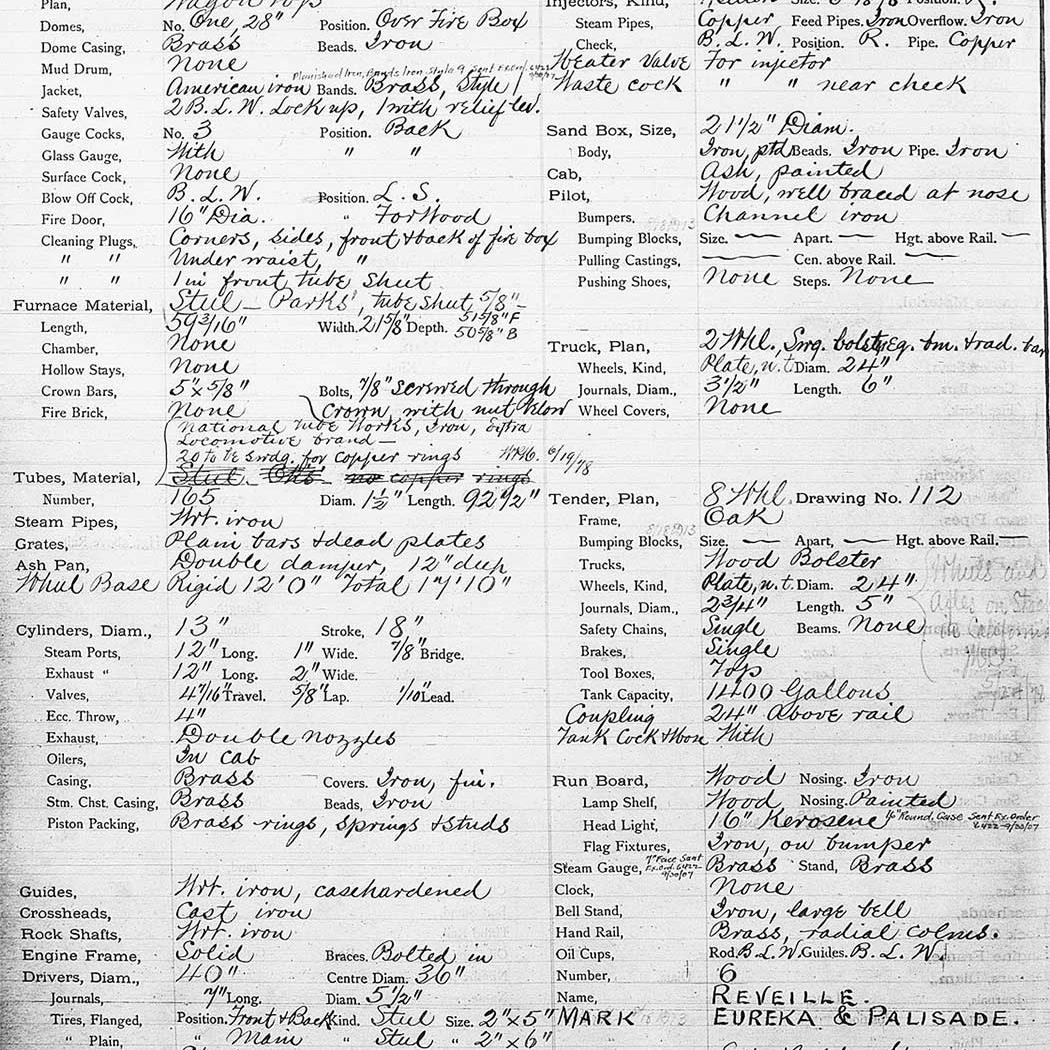 Plan, Wagon Top
Domes, No. One, 28" Position. Over Fire Box
Dome Casing, Brass Beads. Iron
Mud Drum, None
Planished Iron, Bands Iron Style 9 Sent Ex. Ord. 6422 9/30/07
Jacket, American iron Bands. Brass, Style 1
Safety Valves, 2 B.L.W. Lock up, 1 with relief lev.
Gauge Cocks, No. 3 Position. Back
Glass Gauge, With " "
Surface Cock, None
Blow Off Cock, B.L.W. Position. L.S.
Fire Door, 16" Dia. " For Wood
Cleaning Plugs, Corners, sides, front & back of fire box
" " Under waist, "
" " 1 in front tube sheet
Furnace Material, Steel – Parks', tube sheet 5/8" –
Length, 59 3/16" Width. 21 5/8" Depth. 51 5/8" F
50 5/8" B
Chamber, None
Hollow Stays, None
Crown Bars, 5" x 5/8" Bolts, 7/8" screwed through
Fire Brick, None Crown, with nut below
National Tube Works, Iron, Extra
Locomotive brand –
20 to be swdg. for copper rings 6/19/78
Tubes, Material, Steel. no copper rings
Number, 165 Diam. 1 1/2" Length. 92 1/2"
Steam Pipes, Wrt. iron
Grates, Plain bars & dead plates
Ash Pan, Double damper, 12" deep
Wheel Base Rigid 12'0" Total 17'10"
Cylinders, Diam., 13" Stroke, 18"
Steam Ports, 12" Long. 1" Wide. 7/8" Bridge.
Exhaust " 12" Long. 2" Wide.
Valves, 4 7/16" Travel. 5/8" Lap. 1/10" Lead.
Ecc. Throw, 4"
Exhaust, Double nozzles
Oilers, In cab
Casing, Brass Covers. Iron, fin.
Stm. Chst. Casing, Brass Beads, Iron
Piston Packing, Brass rings, springs & studs
Guides, Wrt. iron, casehardened
Crossheads, Cast iron
Rock Shafts, Wrt. iron
Engine Frame, Solid Braces. Bolted in
Drivers, Diam., 40" Centre Diam. 36"
Journals, 7" Long. Diam. 5 1/2"
Tires, Flanged, Position. Front & Back Kind. Steel Size. 2" x 5"
" Plain, " Main " Steel " 2" x 6"
Injectors, Kind, Size. Position. R.
Steam Pipes, Copper Feed Pipes. Iron Overflow. Iron
Check, B.L.W. Position. R. Pipe. Copper
Heater Valve For injector
Waste cock " " near check
Sand Box, Size, 21 1/2" Diam.
Body, Iron, ptd. Beads. Iron Pipe. Iron
Cab, Ash, painted
Pilot, Wood, well braced at nose
Bumpers, Channel iron
Bumping Blocks, Size. — Apart. — Hgt. above Rail. —
Pulling Castings, — Cen. above Rail. —
Pushing Shoes, None Steps. None
Truck, Plan, 2 Whl., Swg. bolster, Eq. bm. & rad. bar
Wheels, Kind, Plate, w.t. Diam. 24"
Journals, Diam., 3 1/2" Length. 6"
Wheel Covers, None
Tender, Plan, 8 Whl. Drawing No. 112
Frame, Oak
Bumping Blocks, Size. — Apart, — Hgt. above Rail. —
Trucks, Wood Bolster
Wheels, Kind, Plate, w.t. Diam. 24"
Journals, Diam., 2 3/4" Length. 5"
Safety Chains, Single Beams. None
Brakes, Single
Tool Boxes, Top
Tank Capacity, 1400 Gallons
Wheels and
Axles on
in California
Coupling 24" above rail
Tank Cock & Hose With
Run Board, Wood Nosing. Iron
Lamp Shelf, Wood Nosing. Painted
Head Light, 16" Kerosene Round, Case Sent Ex. Order
6422 9/30/07
Flag Fixtures, Iron, on bumper
7" Face Sent
Ex. Ord. 6422
9/30/07
Steam Gauge, Brass Stand, Brass
Clock, None
Bell Stand, Iron, large bell
Hand Rail, Brass, radial colms.
Oil Cups, Rod. B.L.W. Guides. B.L.W.
Number, 6
Name, REVEILLE.
MARK EUREKA & PALISADE.